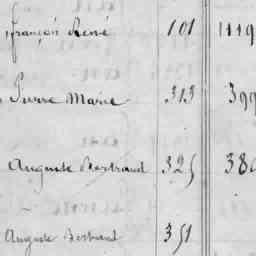 françois René 101 1119
Pierre Marie 313 399
Auguste Bertrand 325 380
Auguste Bertrand 351